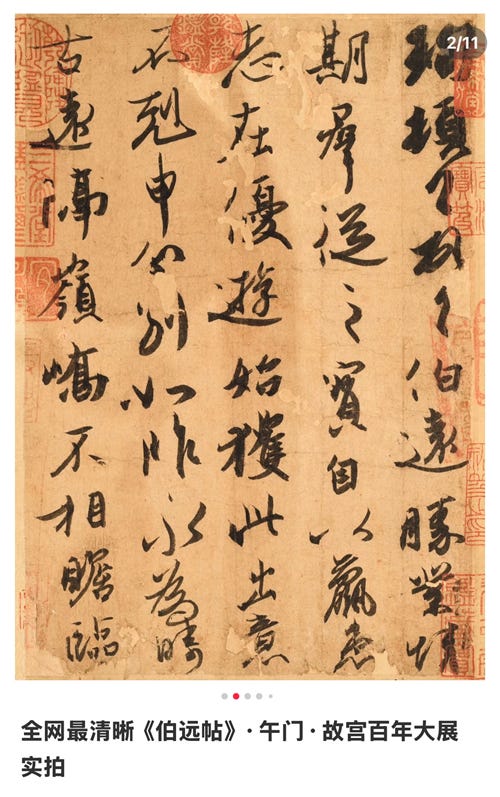 2/11
珣頓首頓首伯遠勝業情
期羣從之寶自以羸患
志在優遊始獲此出意
不剋申分別如昨永為疇
古遠隔嶺嶠不相瞻臨
全网最清晰《伯远帖》· 午门 · 故宫百年大展
实拍